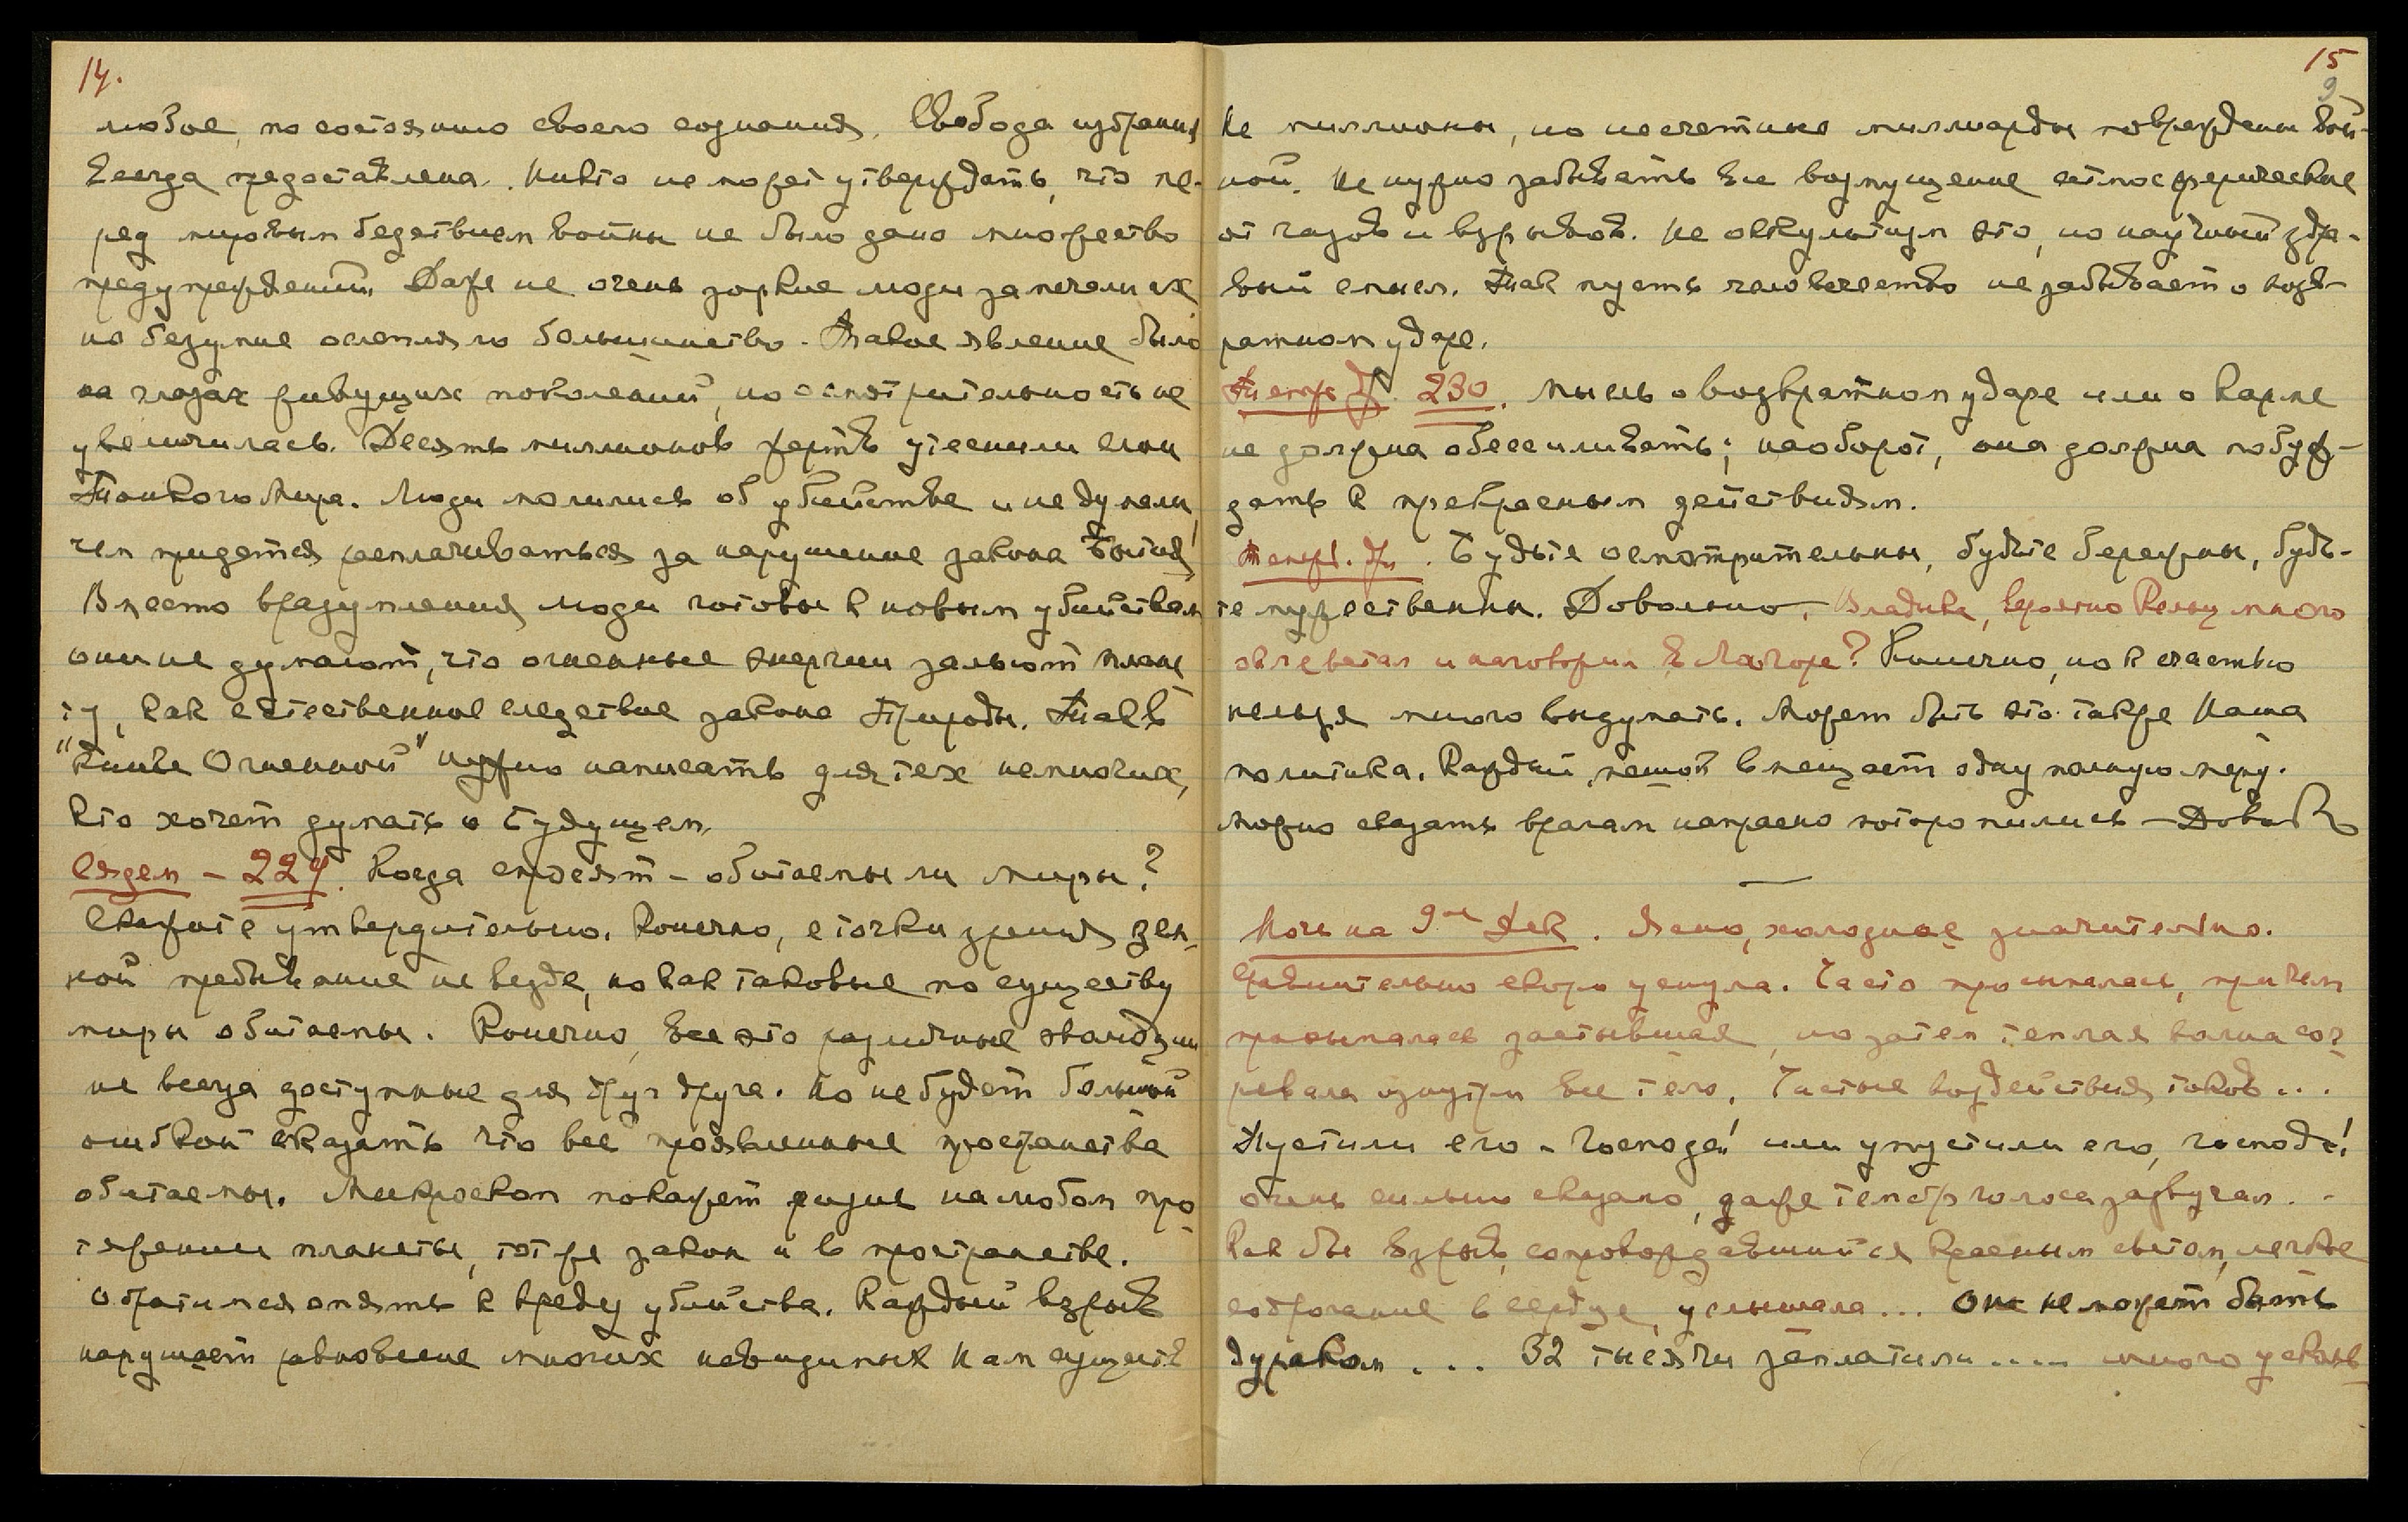 14.
любое, по состоянию своего сознания. Свобода избрания
всегда предоставлена. Никто не может утверждать, что пе-
ред мировым бедствием войны не было дано множество
предупреждений. Даже не очень зоркие люди замечали их
но безумие ослепляло большинство. Такое явление было
на глазах живущих поколений, но осмотрительность не
увеличилась. Десять миллионов жертв утеснили слои
Тонкого Мира. Люди молились об убийстве и не думали,
чем придется расплачиваться за нарушение закона Бытия!
Вместо вразумления люди готовы к новым убийствам
они не думают, что огненные энергии зальют плане
ту, как естественное следствие закона Природы. Так в
"Книге Огненной" нужно написать для тех немногих,
кто хочет думать о Будущем.
Сядем - 229. Когда спросят - обитаемы ли миры?
Скажите утвердительно. Конечно, с точки зрения зем-
ной пребывание не везде, но как таковые по существу
миры обитаемы. Конечно, все это различные эволюции
не всегда доступные для друг друга. Но не будет большой
ошибкой сказать что все проявленные пространства
обитаемы. Микроскоп покажет жизнь на любом про
тяжении планеты, тот же закон и в пространстве.
Обратимся опять к вреду убийства. Каждый взрыв
нарушает равновесие многих невидимых Нам существ
15
9
Не миллионы, но несчетные миллиарды повреждены вой-
ной. Не нужно забывать все возмущение атмосферическое
от газов и взрывов. Не оккультизм это, но научный здра-
вый смысл. Так пусть человечество не забывает о возв-
ратном ударе.
Тенгр Др. 230. Мысль о возвратном ударе или о Карме
не должна обессиливать; наоборот, она должна побуж-
дать к прекрасным действиям.
Будьте осмотрительны, будьте бережны, будь-
те мужественны. Довольно. Владыка, вероятно Кельц много
оклеветал и наговорил в Лагоре? Конечно, но к счастью
нельзя много выдумать. Может быть это также Наша
политика. Каждый мешок вмещает одну полную меру.
Можно сказать врагам напрасно поторопились — Дов.
—
Ночь на 9-ое Дек. Ясно, холоднее значительно.
Сравнительно скоро уснула. Часто просыпалась, причем
просыпалась застывшая, но затем теплая волна сог
ревала изнутри все тело. Частые воздействия токов...
Пустили его - Господа! или упустили его, господа!
очень сильно сказано, даже тембр голоса зазвучал..
Как бы взрыв, сопровождавшийся красным светом, легкое
содрогание в сердце, услышала... Он не может быть
дураком... 32 тысячи заплатили.... много ускольз